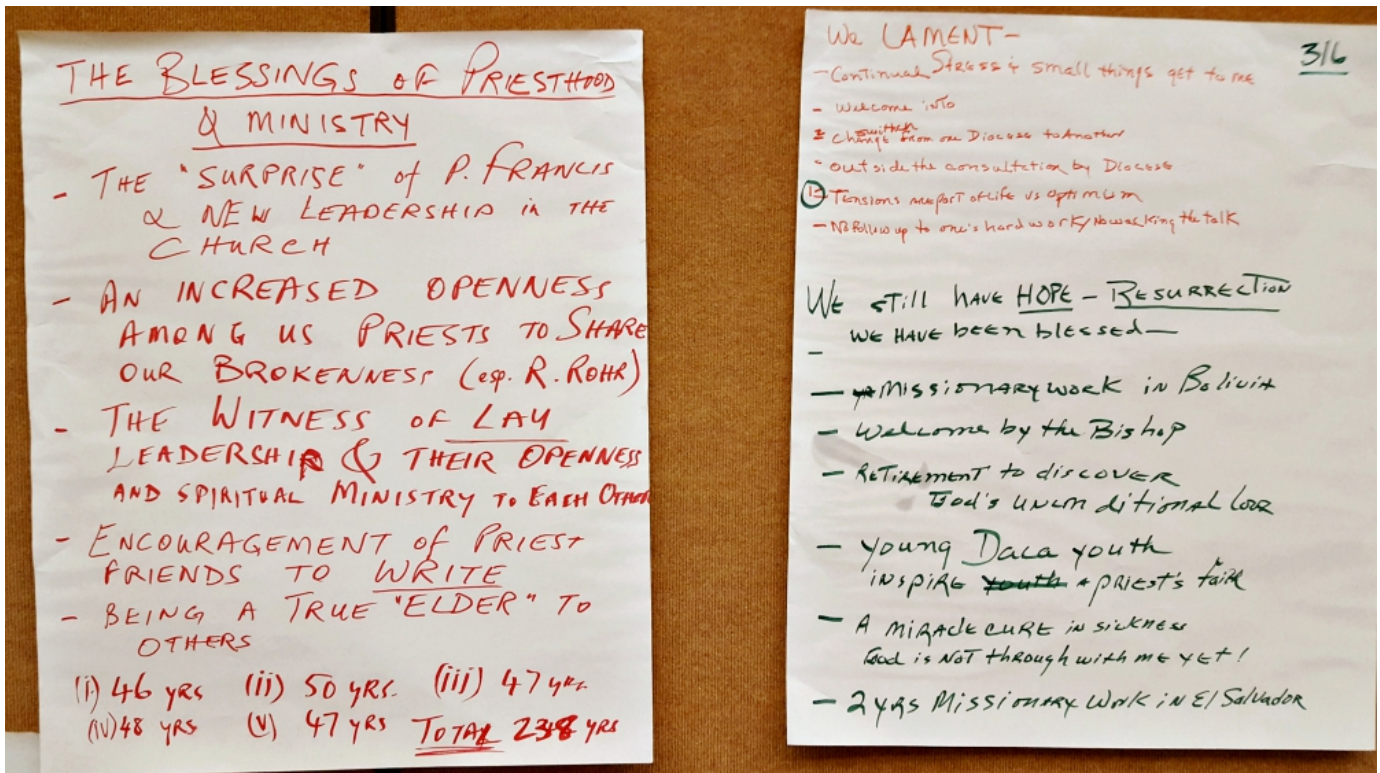 THE BLESSINGS OF PRIESTHOOD
& MINISTRY
- THE "SURPRISE" of P. FRANCIS
& NEW LEADERSHIP in THE
CHURCH
- AN INCREASED OPENNESS
AMONG US PRIESTS TO SHARE
OUR BROKENNESS (esp. R. ROHR)
- THE WITNESS OF LAY
LEADERSHIP & THEIR OPENNESS
AND SPIRITUAL MINISTRY TO EACH OTHER
- ENCOURAGEMENT of PRIEST
FRIENDS TO WRITE
- BEING A TRUE "ELDER" TO
OTHERS
(i) 46 yrs (ii) 50 yrs. (iii) 47 yrs.
(iv) 48 yrs (v) 47 yrs TOTAL 238 yrs
We LAMENT-
3/6
- Continual Stress & small things get to me
- Welcome into
- Change from one Diocese to Another
- outside the consultation by Diocese
- Tensions are part of life vs optimum
- No follow up to one's hard work/No walking the talk
We still have HOPE - RESURRECTION
WE HAVE been blessed-
-
- Missionary work in Bolivia
- Welcome by the Bishop
- Retirement to discover
God's unconditional love
- Young Daca youth
inspire a priest's faith
- A miracle cure in sickness
God is not through with me yet!
- 2 yrs Missionary Work in El Salvador